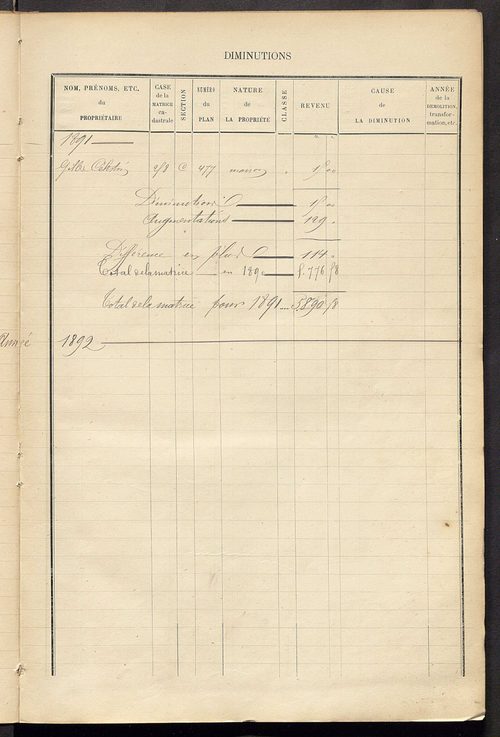 DIMINUTIONS
NOM, PRÉNOMS, ETC. du PROPRIÉTAIRE
CASE de la MATRICE ca- dastrale
SECTION
NUMÉRO du PLAN
NATURE de LA PROPRIÉTÉ
CLASSE
REVENU
CAUSE de LA DIMINUTION
ANNÉE de la DEMOLITION, transfor- mation, etc.
1891
C 477 maison
Diminutions
Augmentations 129
Différence en plus 114
Total de la matrice en 189 776
Total de la matrice pour 1891 5890
Année 1892